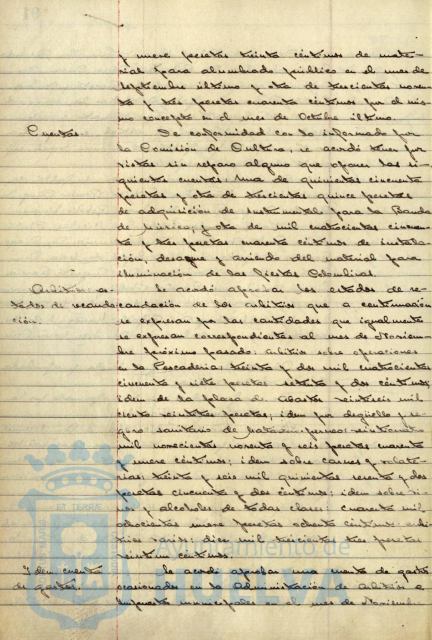 y nueve pesetas treinta céntimos de mate-
rial para alumbrado público en el mes de
Septiembre último y otra de trescientas noven-
ta y tres pesetas cuarenta céntimos por el mis-
mo concepto en el mes de Octubre último.
Cuentas.
De conformidad con lo informado por
la Comisión de Cultura, se acordó tener por
vistas sin reparo alguno que oponer las si-
guientes cuentas: Una de quinientas cincuenta
pesetas y otra de trescientas quince pesetas
de adquisición de instrumental para la Banda
de Música; y otra de mil cuatrocientas cincuen-
ta y tres pesetas cuarenta céntimos de instala-
ción, desagüe y arriendo del material para
iluminación de las fiestas Colombinas.
Arbitrios: es-
tados de recauda-
ción.
Se acordó aprobar los estados de re-
caudación de los arbitrios que a continuación
se expresan por las cantidades que igualmente
se expresan correspondientes al mes de Noviem-
bre próximo pasado: arbitrio sobre operaciones
en la Pescadería: treinta y dos mil cuatrocientas
cincuenta y siete pesetas setenta y dos céntimos;
idem de la plaza de Abastos veintiseis mil
ciento veintitres pesetas; idem por degüello y se-
guro sanitario de
mil novecientas noventa y seis pesetas cuarenta
y nueve céntimos; idem sobre carnes y volate-
rias: treinta y seis mil quinientas sesenta y dos
pesetas cincuenta y dos céntimos; idem sobre vi-
nos y alcoholes de todas clases: cuarenta mil
ochocientas nueve pesetas ochenta céntimos: arbi-
trios varios: diez mil trescientas tres pesetas
veintiun céntimos.
Idem: cuenta
de gastos.
Se acordó aprobar una cuenta de gastos
ocasionados en la Administración de Arbitrios e
Impuestos municipales en el mes de Noviembre
Ayuntamiento de
HUELVA